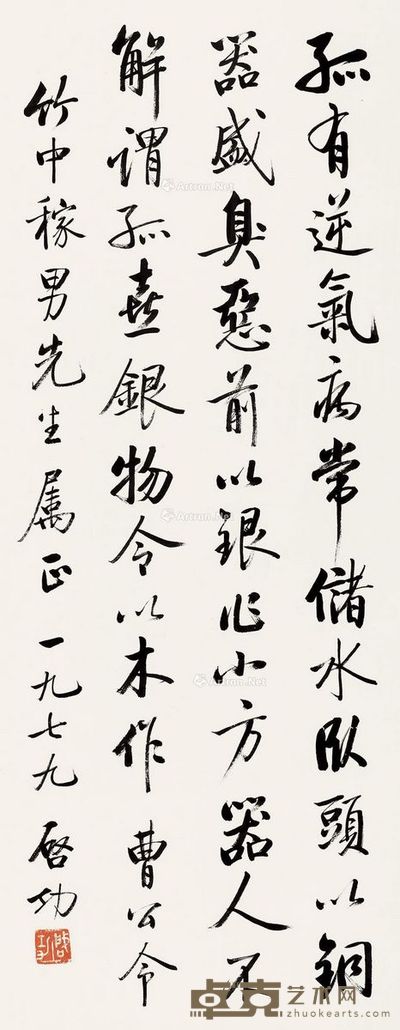 孤有逆氣病常儲水臥頭以銅
器盛臭惡前以銀作小方器人不
解謂孤喜銀物令以木作 曹公令
竹中稼男先生属正 一九七九 啓功
啓功
Artron.Net
卓克艺术网
zhuokearts.com